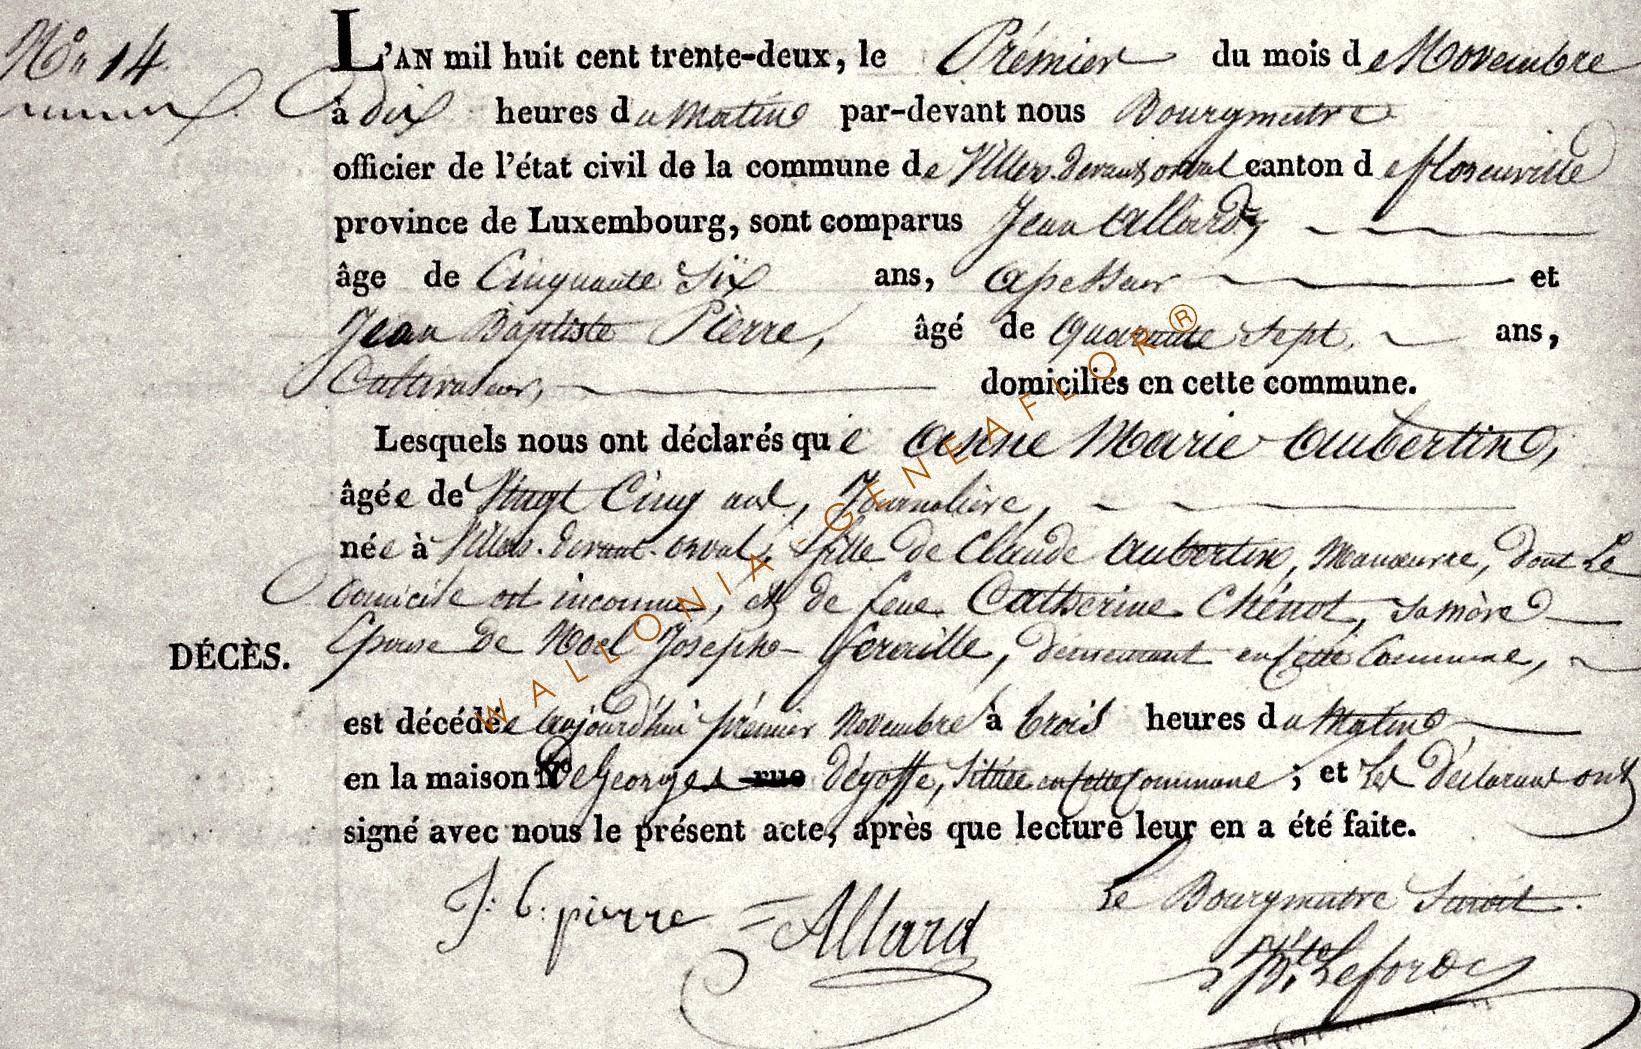 N° 14
L'AN mil huit cent trente-deux, le Prémier du mois de Novembre
à dix heures du Matin par-devant nous Bourgmestre
officier de l'état civil de la commune de Villers-devant-orval canton de florenville
province de Luxembourg, sont comparus Jean Allard,
âgé de Cinquante Six ans, assesseur et
Jean Baptiste Pierre, âgé de Quarante Sept ans,
Cultivateur, domiciliés en cette commune.
Lesquels nous ont déclarés que Anne Marie Aubertin,
âgée de Vingt Cinq ans, Journalière,
née à Villers-devant-orval, fille de Claude Aubertin, Manœuvre, dont Le
domicile est inconnu, et de feue Catherine Chénot, sa mère
DÉCÈS.
Epouse de Noel Josephe, demeurant en cette Commune,
est décédée aujourd'hui prémier Novembre à trois heures du Matin
en la maison de Georges rue dégoffe, Située en cette Commune ; et Les déclarans ont
signé avec nous le présent acte, après que lecture leur en a été faite.
J: b: pierre
Allard
Le Bourgmestre
Leforde
WALLONIA-GENEAFLOR®